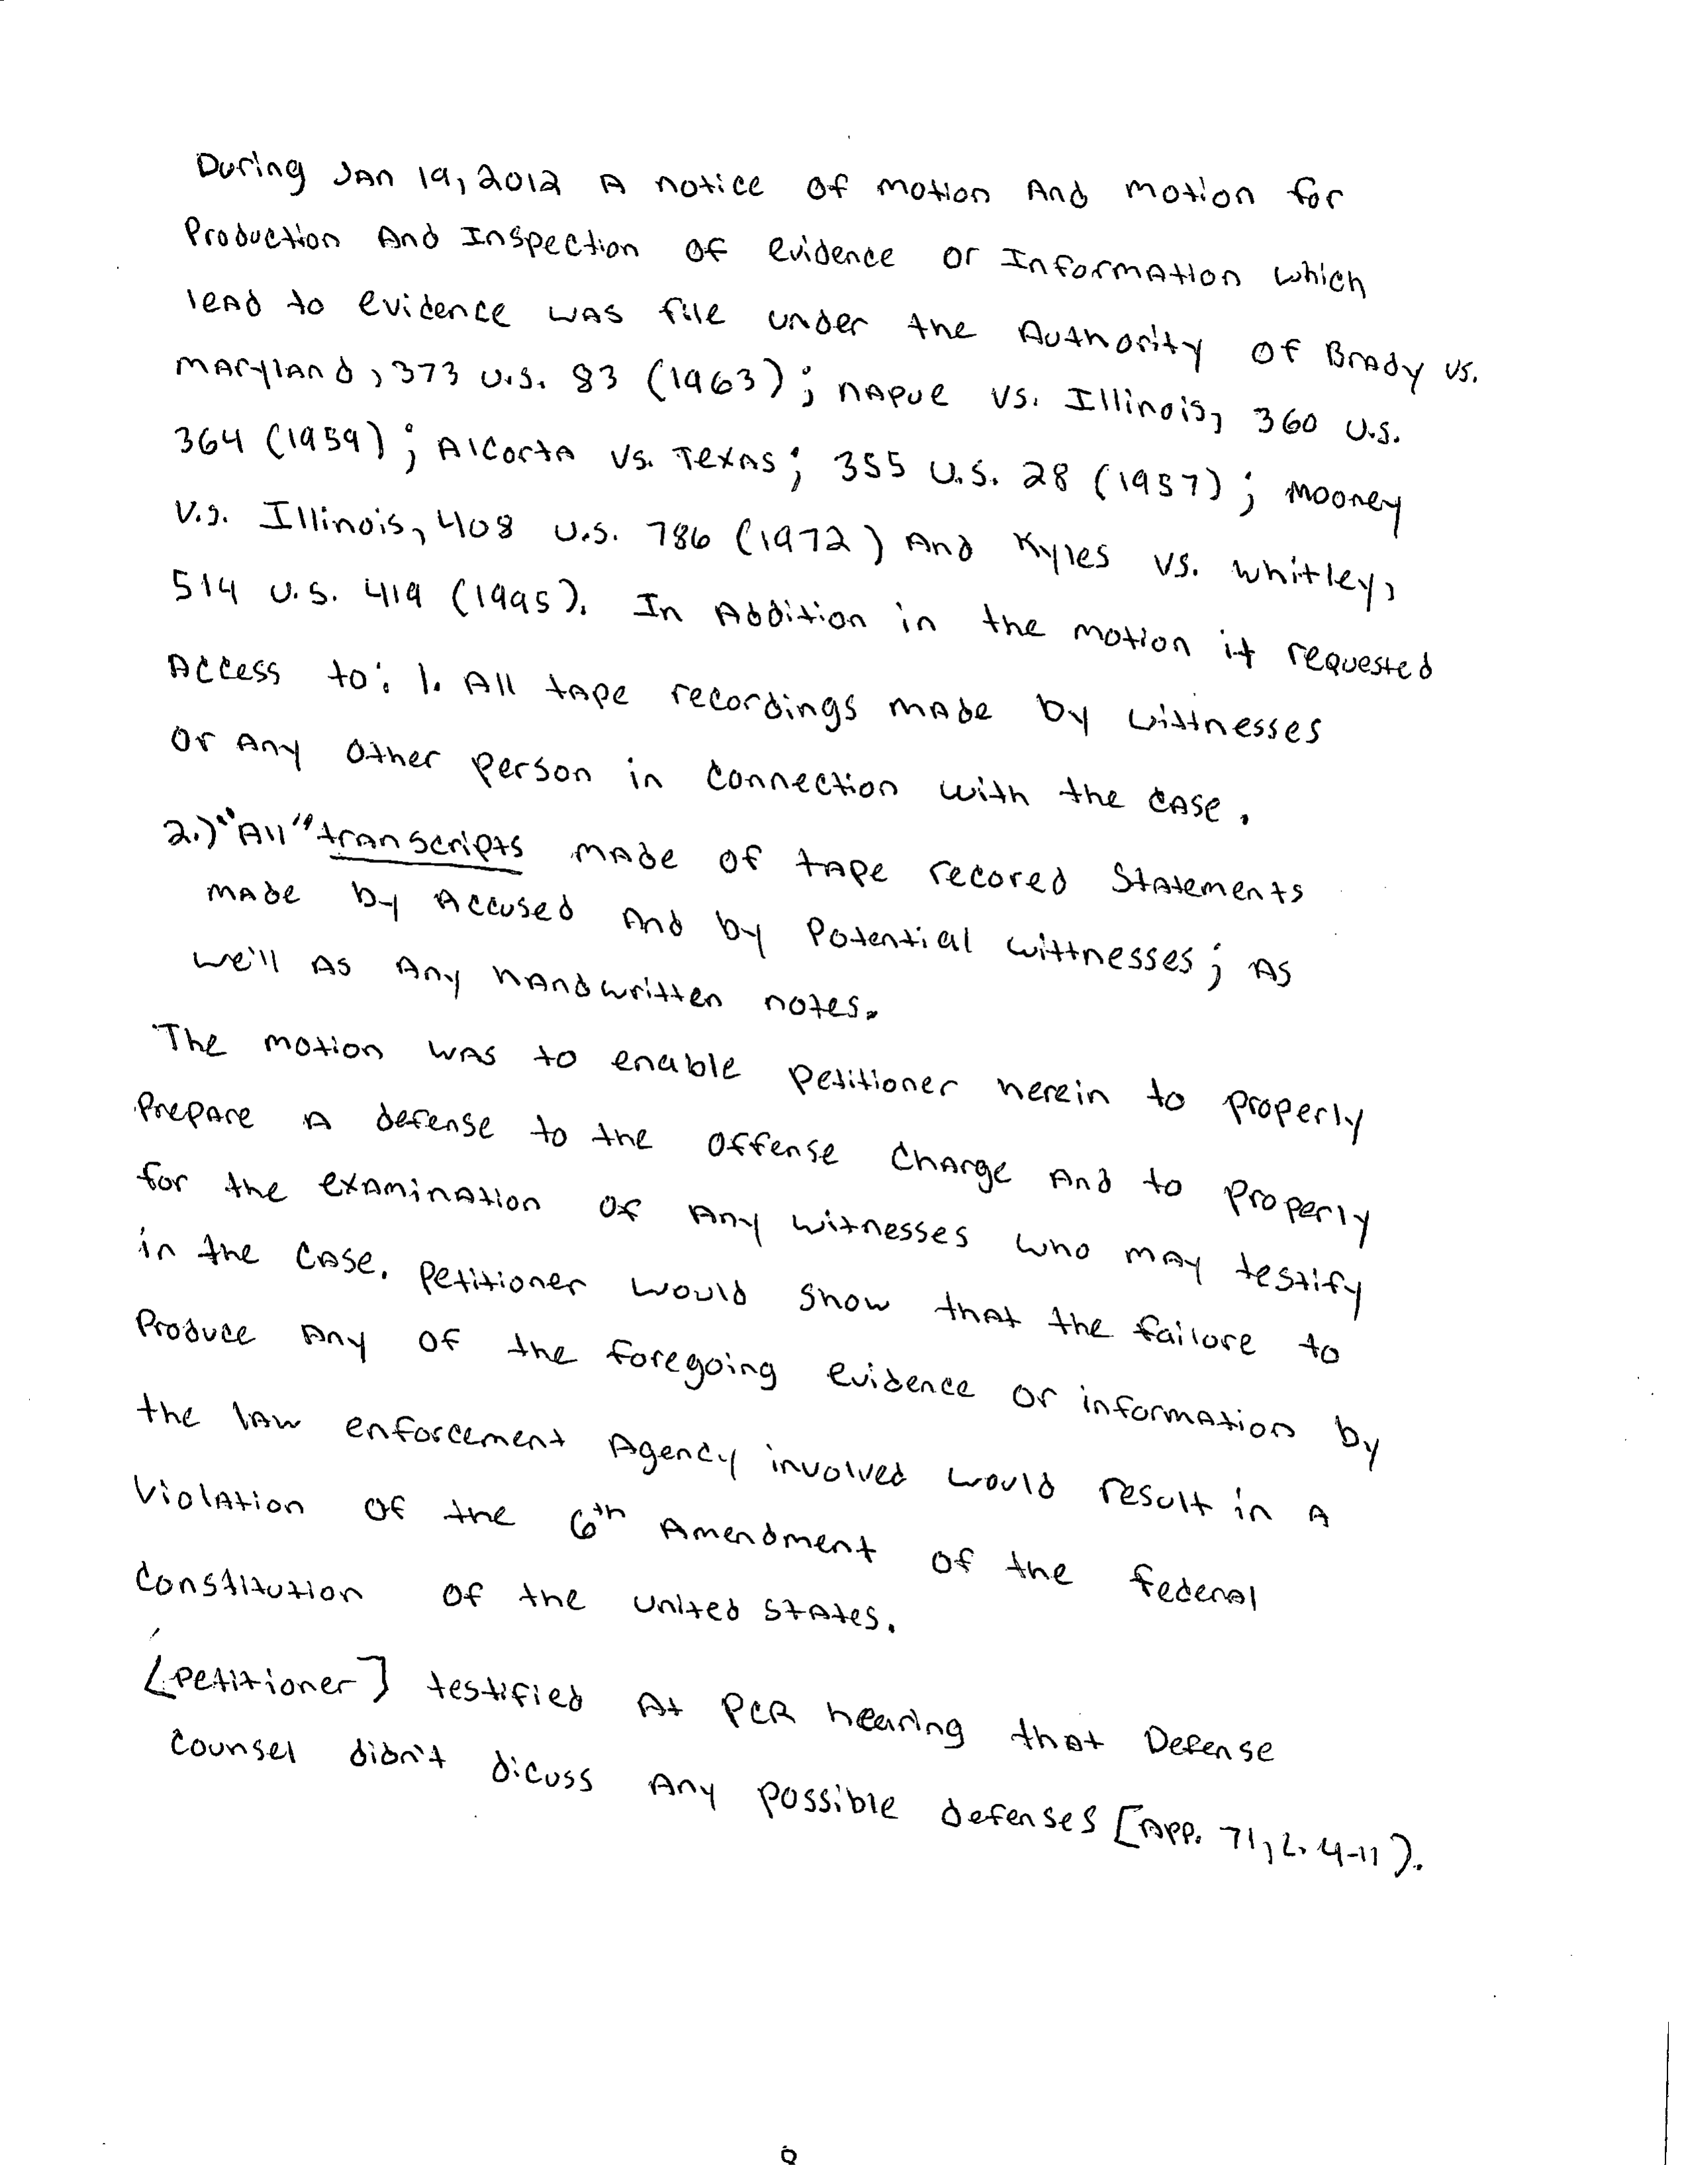 During JAN 19, 2012 A notice of motion And motion for
Production And Inspection of evidence or Information which
lead to evidence was file under the Authority of Brady vs.
Maryland, 373 U.S. 83 (1963); Napue vs. Illinois, 360 U.S.
364 (1959); Alcorta vs. Texas; 355 U.S. 28 (1957); Mooney
V.s. Illinois, 408 U.S. 786 (1972) And Kyles vs. Whitley,
514 U.S. 419 (1995). In Addition in the motion it requested
Access to: 1. All tape recordings made by wittnesses
or Any other person in connection with the case.
2.) "All" transcripts made of tape recored Statements
made by Accused And by Potential wittnesses; As
we'll As Any handwritten notes.
The motion was to enable Petitioner herein to properly
Prepare A defense to the offense charge And to properly
for the examination of Any witnesses who may testify
in the case. Petitioner would show that the failure to
Produce Any of the foregoing evidence or information by
the law enforcement Agency involved would result in A
Violation of the 6th Amendment of the federal
Constitution of the united States.
[Petitioner] testified At PCR hearing that Defense
Counsel didn't dicuss Any possible defenses [App. 71, L. 4-11).
8